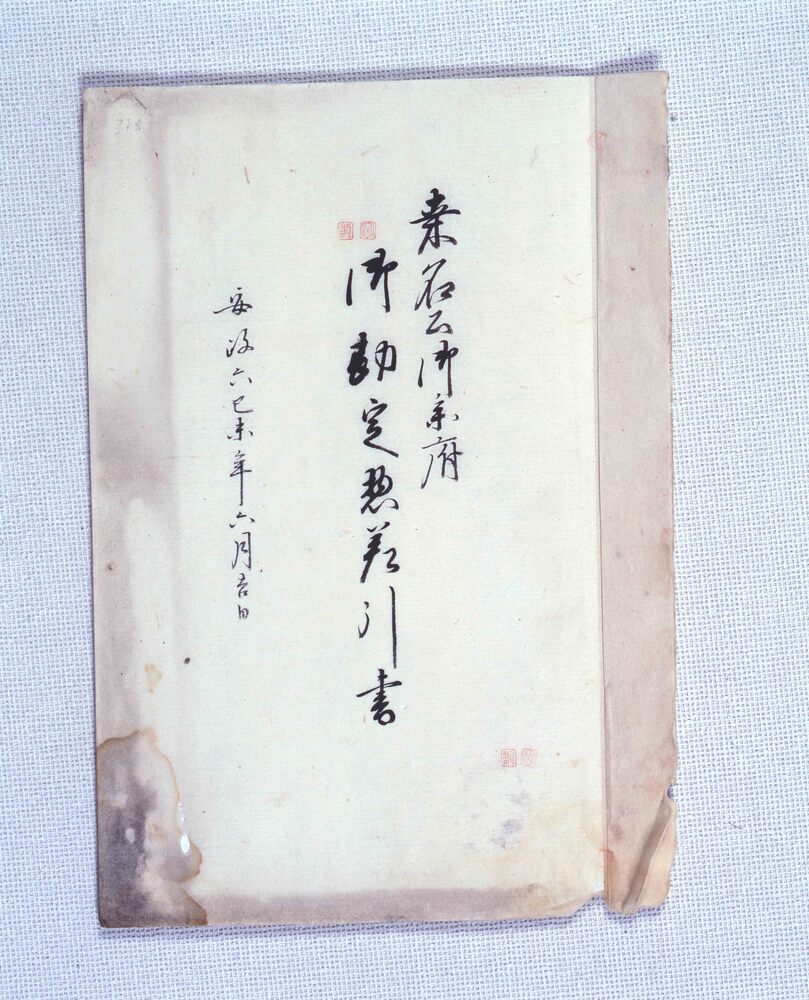 桑名公御家府
御勘定惣差引書
安政六己未年六月吉日